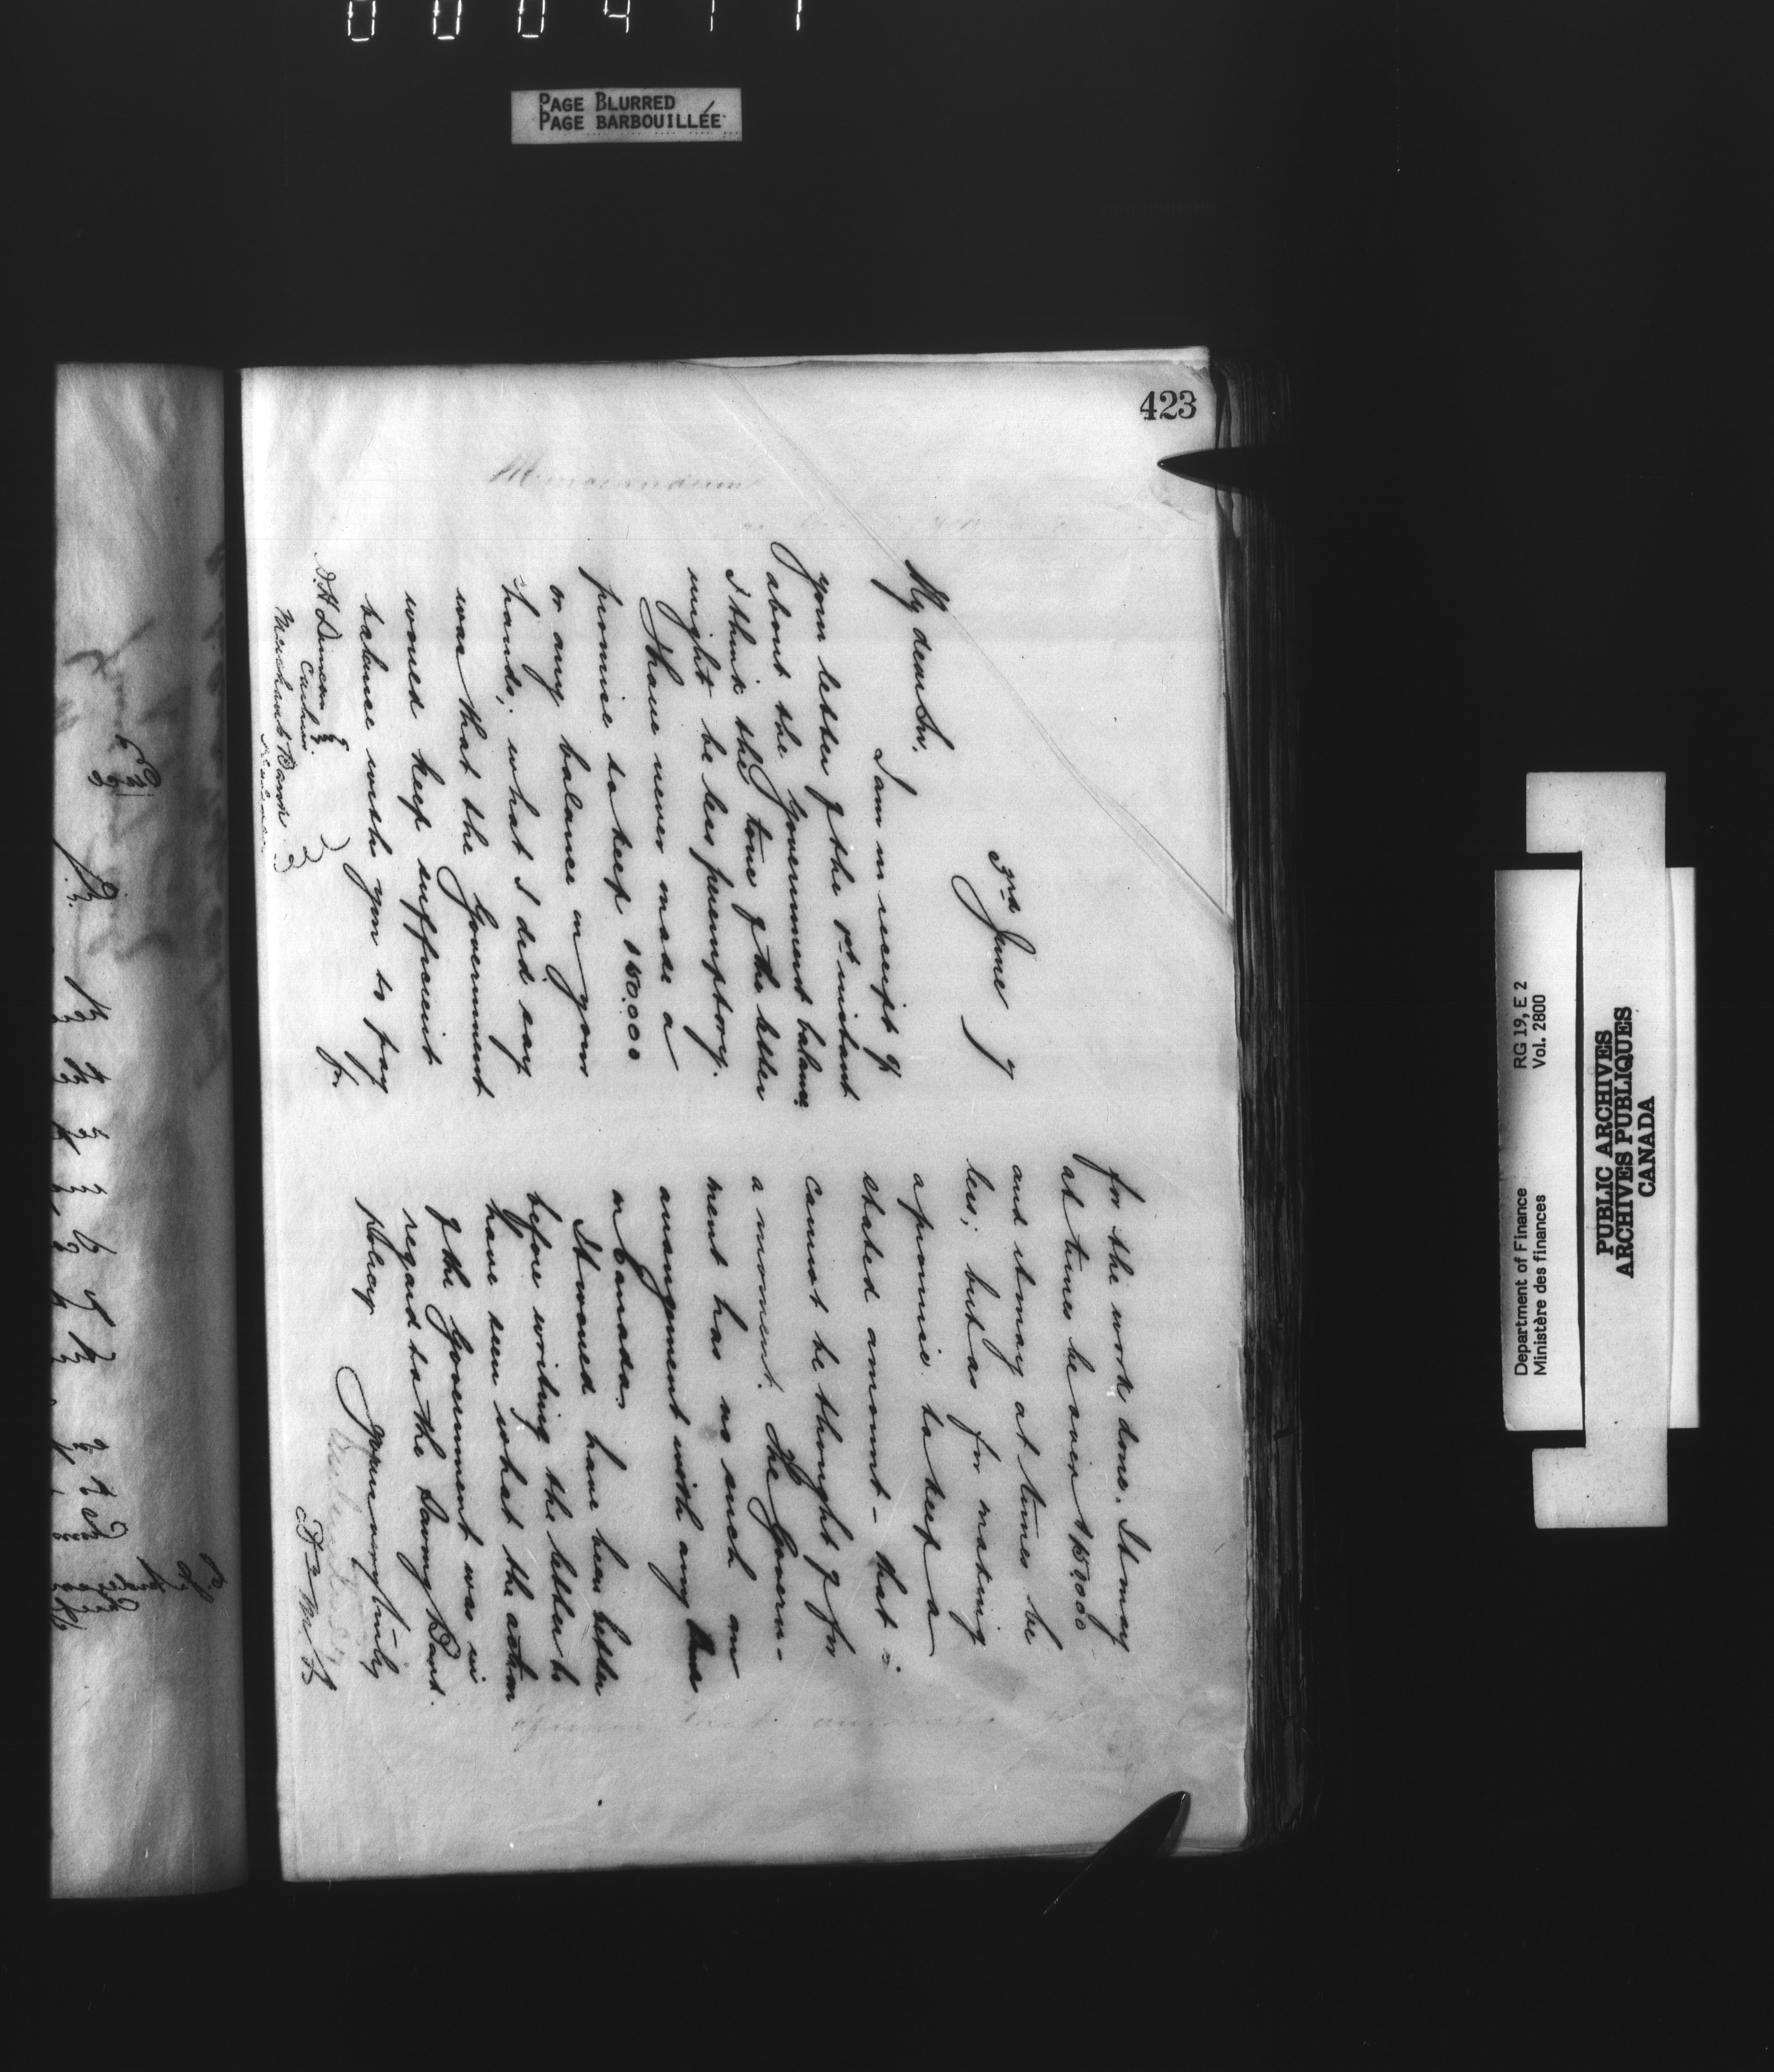 PAGE BLURRED
PAGE BARBOUILLÉE
423
3rd June 7
My dear Sir,
I am in receipt of
your letter of the 1st instant
about the Government balance.
I think the tone of the letter
might be less peremptory.
I have never made a
promise to keep 150.000
or any balance in your
hands; what I did say
was that the Government
would keep sufficient
balance with you to pay
for
D. H. Duncan Esq
Cashier
Merchants Bank
for the work done. It may
at times be over 150.000
and it may at times be
less; but as for making
a promise to keep a
stated amount - that
cannot be thought of for
a moment. The Govern-
ment has no such an
arrangement with any Bank
in Canada.
It would have been better
before writing the letter to
have seen what the action
of the Government was in
regard to the Savings Bank
policy
Yours very truly
Department of Finance RG 19, E 2
Ministère des finances Vol. 2800
PUBLIC ARCHIVES
ARCHIVES PUBLIQUES
CANADA